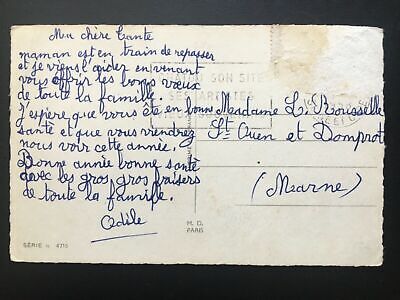 Ma chère Tante
maman est en train de repasser
et je viens l'aider en venant
vous offrir les bons vœux
de toute la famille.
J'espère que vous ête en bonne
santé et que vous viendrez
nous voir cette année.
Bonne année bonne santé
avec les gros gros baisers
de toute la famille.
Odile
Madame L. Rousselle
St Ouen et Domprot
(Marne)
SON SITE
M. D.
PARIS
SÉRIE n. 4715